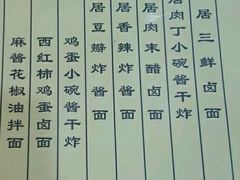 居三鲜卤面
居肉丁小碗酱干炸
居肉末醋卤面
居香辣炸酱面
居豆瓣炸酱面
鸡蛋小碗酱干炸
西红柿鸡蛋卤面
麻酱花椒油拌面